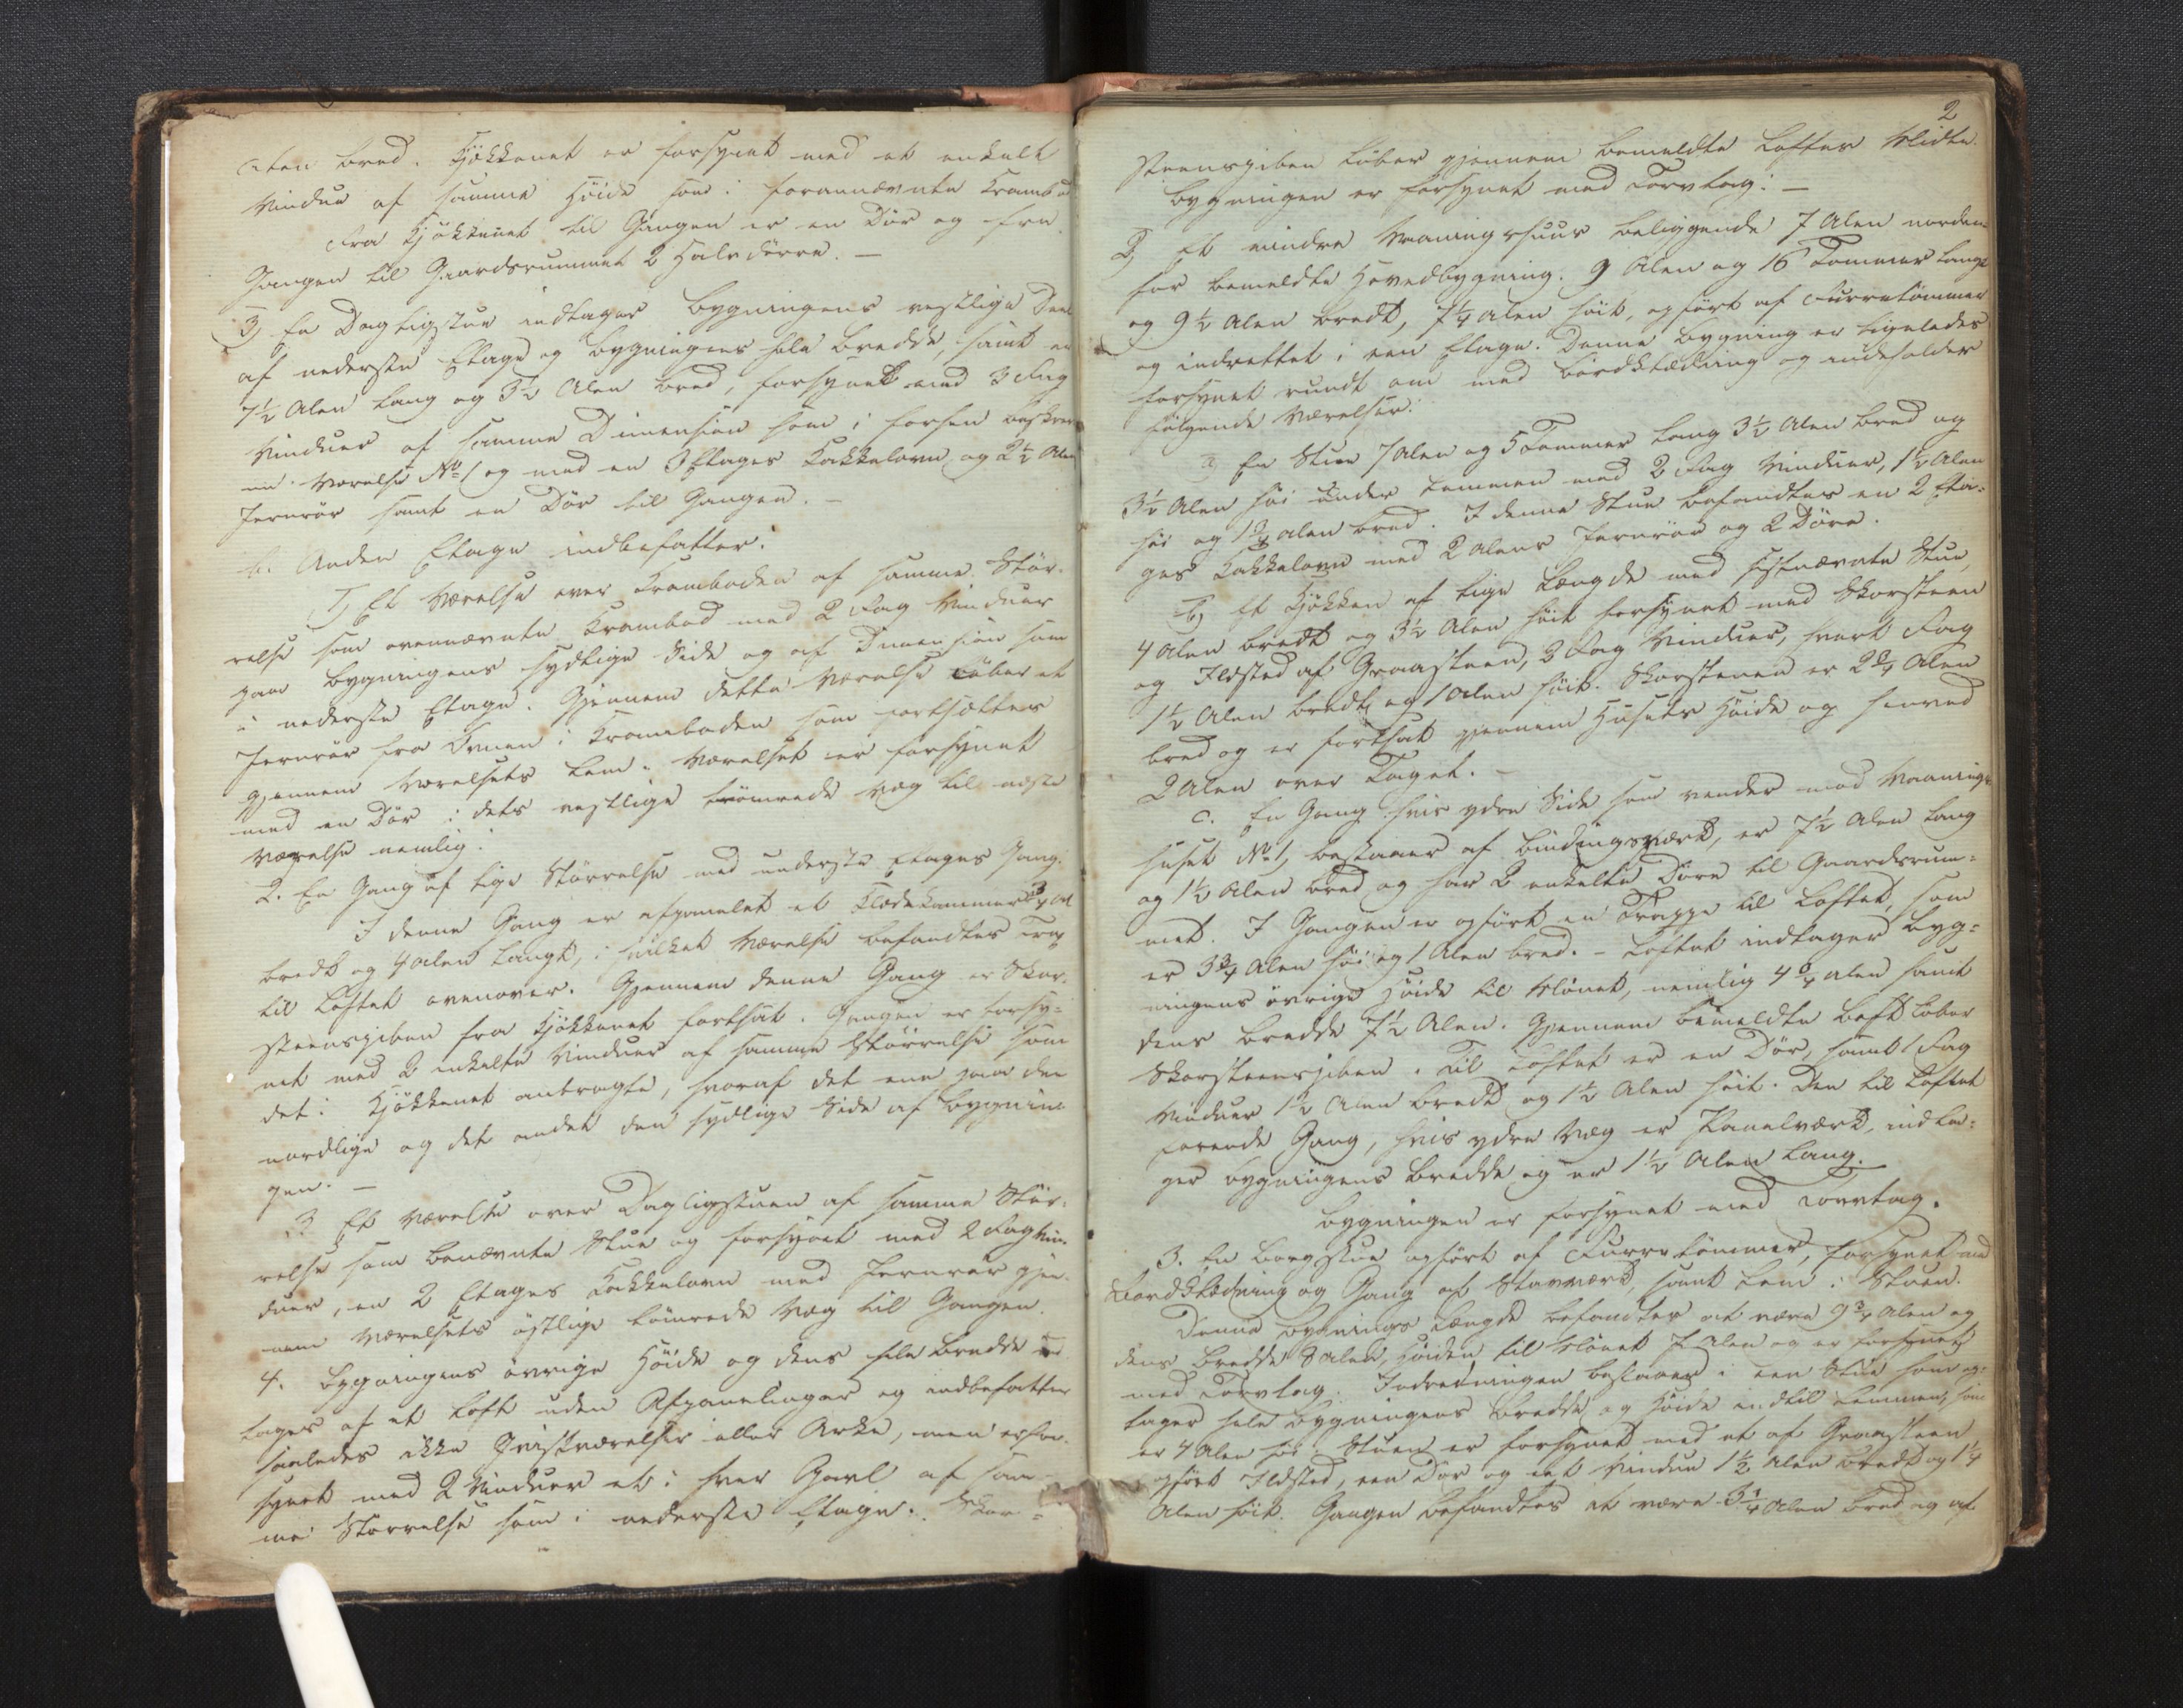 Alen bred. Kjøkkenet er forsynet med et enkelt
Vindue af samme Høide som i forannævnte Krambod
Fra Kjøkkenet til Gangen er en Dør og fra
Gangen til Gaardsrummet 2 Halvdørre. —
3) En Dagligstue indtager Bygningens vestlige Deel
af nederste Etage og Bygningens hele Bredde, samt er
7½ Alen lang og 3½ Alen bred, forsynet med 3 Fag
Vinduer af samme Dimension som i forhen beskrev
ne Værelse No 1 og med en 3 Etages Kakkelovn og 2½ Alen
Jernrør samt en Dør til Gangen. —
b. Anden Etage indbefatter:
1) Et Værelse over Kramboden af samme Stør-
relse som ovennævnte Krambod med 2 Fag Vinduer
paa Bygningens sydlige Side og af Dimension som
i nederste Etage. Gjennem dette Værelse løber et
Jernrør fra Ovnen i Kramboden som fortsættes
gjennem Værelsets Lem. Værelset er forsynet
med en Dør i dets vestlige tømrede Væg til næste
Værelse nemlig:
2. En Gang af lige Størrelse med underste Etages Gang.
I denne Gang er afpanelet et Klædekammer ¾ Al
bredt og 4 Alen langt, i hvilket Værelse befandtes Trap
til Loftet ovenover. Gjennem denne Gang er Skor-
steenspiben fra Kjøkkenet fortsat. Gangen er forsy-
net med 2 enkelte Vinduer af samme Størrelse som
det i Kjøkkenet antragte, hvoraf det ene paa den
nordlige og det andet den sydlige Side af Bygnin-
gen. —
3 Et Værelse over Dagligstuen af samme Stør-
relse som benævnte Stue og forsynet med 2 Fag Vin-
duer, en 2 Etages Kakkelovn med Jernrør gjen-
nem Værelsets østlige tømrede Væg til Gangen.
4. Bygningens øvrige Høide og dens hele Bredde ind
tages af et Loft uden Afpanelinger og indbefatter
saaledes ikke Qvistværelser eller Arke, men er for-
synet med 2 Vinduer et i hver Gavl af sam-
me Størrelse som i nederste Etage. Skor-
2
steenspiben løber gjennem bemeldte Lofter Midte.
Bygningen er forsynet med Torvtag: —
2) Et mindre Vaaningshuus beliggende 7 Alen norden-
for bemeldte Hovedbygning. 9 Alen og 16 Tommer langt
og 9½ Alen bredt, 7¼ Alen høit, opført af Furretømmer
og indrettet i een Etage. Denne Bygning er ligeledes
forsynet rundt om med Bordklædning og indeholder
følgende Værelser:
a) En Stue 7 Alen og 5 Tommer lang 3½ Alen bred og
3½ Alen høi under Lemmen med 2 Fag Vinduer, 1½ Alen
høi og 1¾ Alen bred. I denne Stue befandtes en 2 Eta-
ges Kakkelovn med 2 Alens Jernrør og 2 Døre.
b) Et Kjøkken af lige Længde med sistnævnte Stue,
4 Alen bredt og 3½ Alen høit forsynet med Skorsteen
og Ildsted af Graasteen, 3 Fag Vinduer, hvert Fag
1½ Alen bredt og 1 Alen høit. Skorstenen er 2¾ Alen
bred og er fortsat gjennem Husets Høide og henved
2 Alen over Taget. —
c. En Gang hvis ydre Side som vender mod Vaanings-
huset No 1, bestaaer af Bindingsværk, er 7½ Alen lang
og 1½ Alen bred og har 2 enkelte Døre til Gaardsrum-
met. I Gangen er opført en Trappe til Loftet, som
er 3¾ Alen høi og 1 Alen bred. — Loftet indtager Byg-
ningens øvrige Høide til Mønet, nemlig 4¾ Alen samt
dens Bredde 7½ Alen. Gjennem bemeldte Loft løber
Skorsteenspiben. Til Loftet er en Dør, samt 1 Fag
Vinduer 1½ Alen bredt og 1½ Alen høit. Den til Loftet
førende Gang, hvis ydre Væg er Panelværk, indta-
ger Bygningens Bredde og er 1½ Alen lang.
Bygningen er forsynet med Torvtag.
3. En Borgstue opført af Furretømmer, forsynet med
Bordklædning og Gang af Stavværk, samt Lem i Stuen.
Denne Bygnings Længde befandtes at være 9¾ Alen og
dens Bredde 8 Alen, Høiden til Mønet 7 Alen og er forsynet
med Torvtag. Indredningen bestaaer i een Stue som op-
tager hele Bygningens Bredde og Høide indtil Lemmen, som
er 4 Alen høi. Stuen er forsynet med et af Graasteen
opført Ildsted, een Dør og et Vindue 1½ Alen bredt og 1¼
Alen høit. Gangen befandtes at være 3¼ Alen bred og af